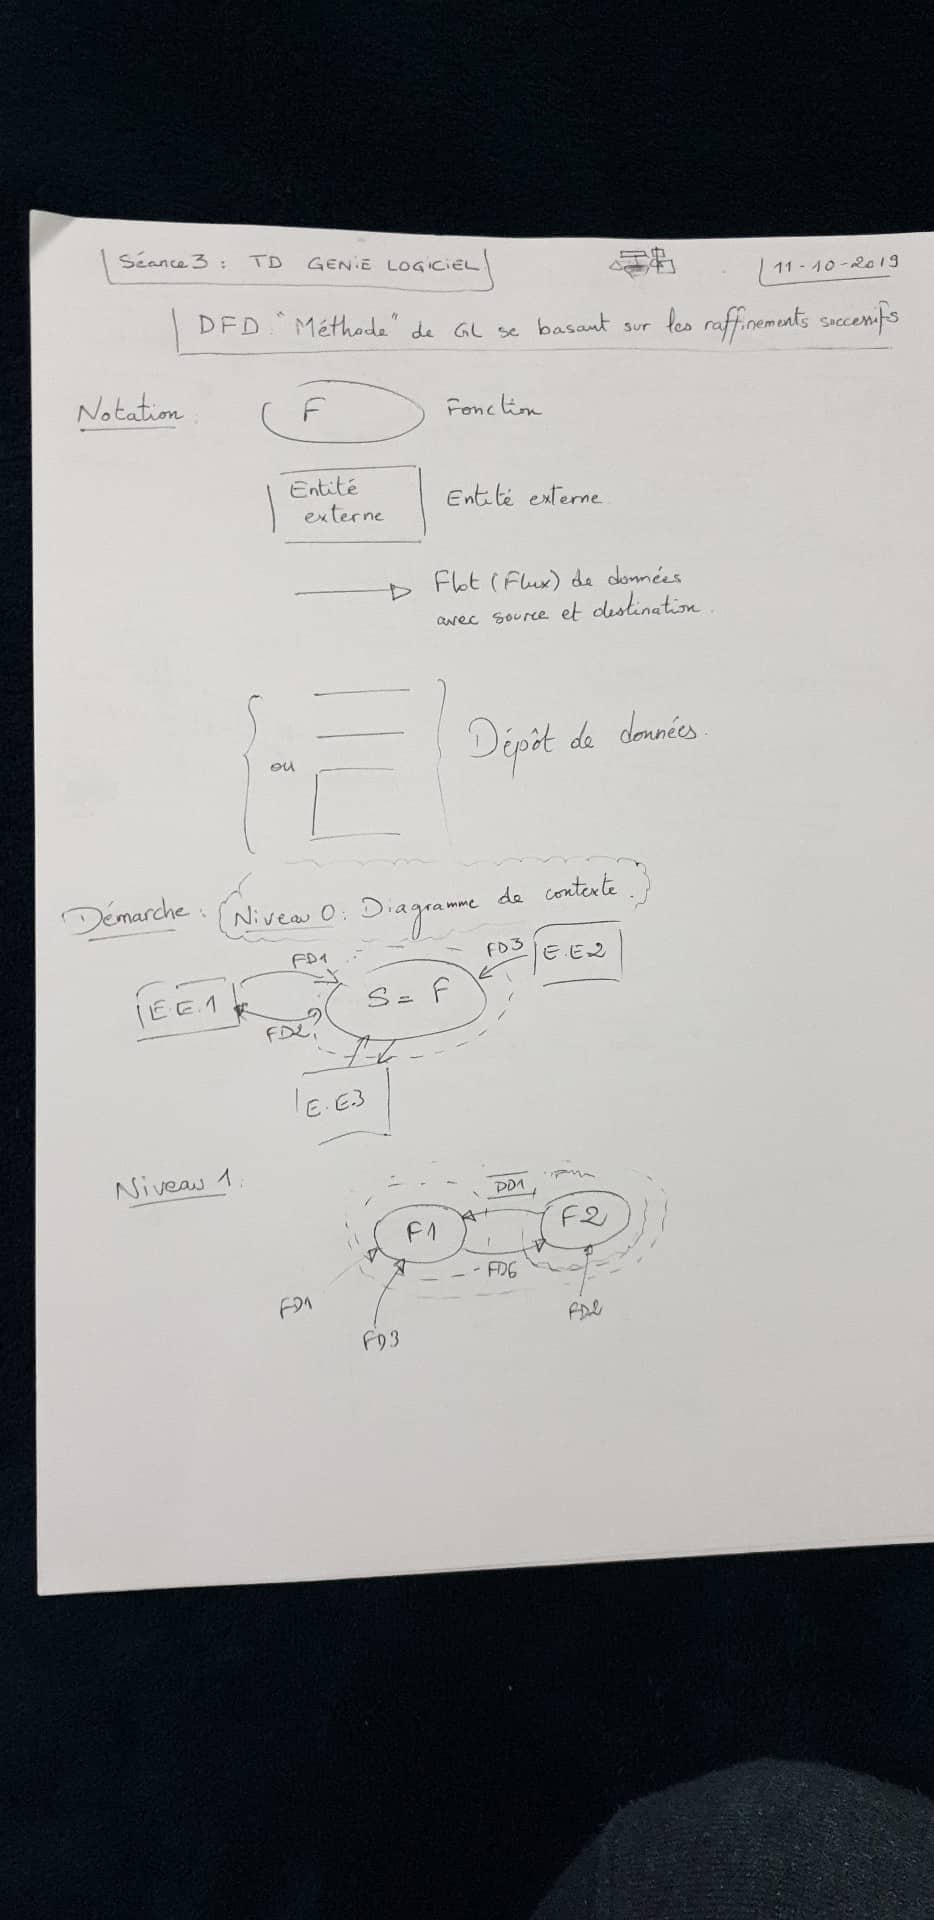 Séance 3 : TD GENIE LOGICIEL
11-10-2019
DFD "Méthode" de GL se basant sur les raffinements successifs
Notation :
F
Fonction
Entité
externe
Entité externe
Flot (Flux) de données
avec source et destination.
ou
Dépôt de données.
Démarche : Niveau 0 : Diagramme de contexte.
FD1
FD3
E.E2
E.E.1
S = F
FD2
E.E3
Niveau 1.
DD1
F1
F2
FD6
FD1
FD2
FD3